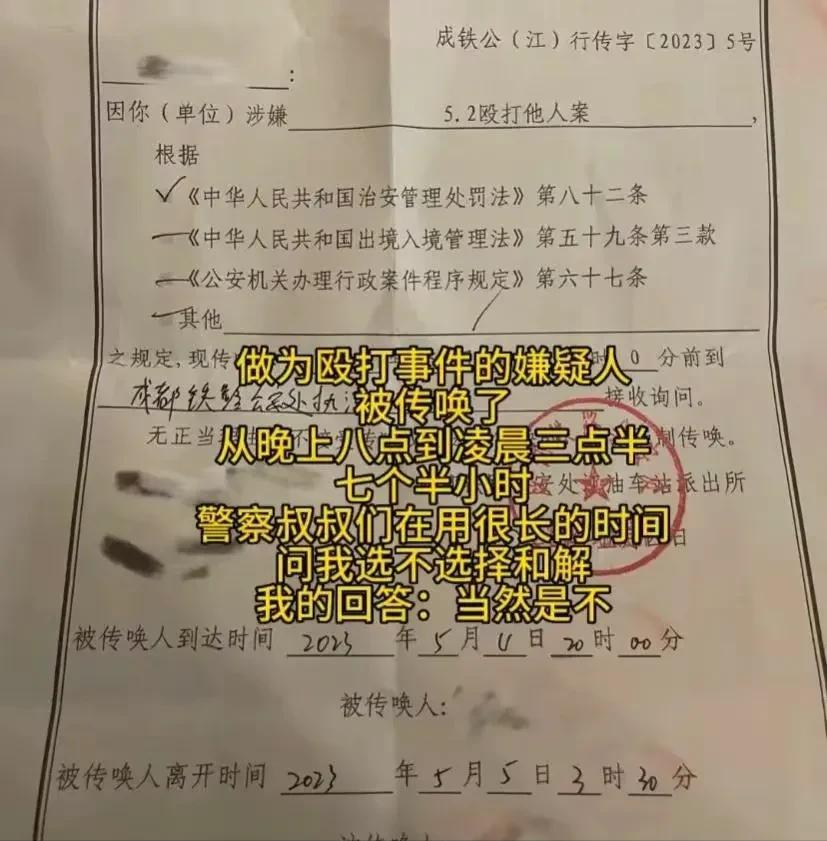 成铁公（江）行传字〔2023〕5号
：
因你（单位）涉嫌 5.2殴打他人案 ，
根据
✓《中华人民共和国治安管理处罚法》第八十二条
《中华人民共和国出境入境管理法》第五十九条第三款
《公安机关办理行政案件程序规定》第六十七条
其他
之规定,现传 时 0 分前到
做为殴打事件的嫌疑人
成都铁 公 处执 接收询问。
被传唤了
无正当 制传唤。
从晚上八点到凌晨三点半
七个半小时
安处 油车站派出所
警察叔叔们在用很长的时间
日
问我选不选择和解
我的回答：当然是不
被传唤人到达时间 2023 年 5 月 4 日 20 时 00 分
被传唤人：
被传唤人离开时间 2023 年 5 月 5 日 3 时 30 分